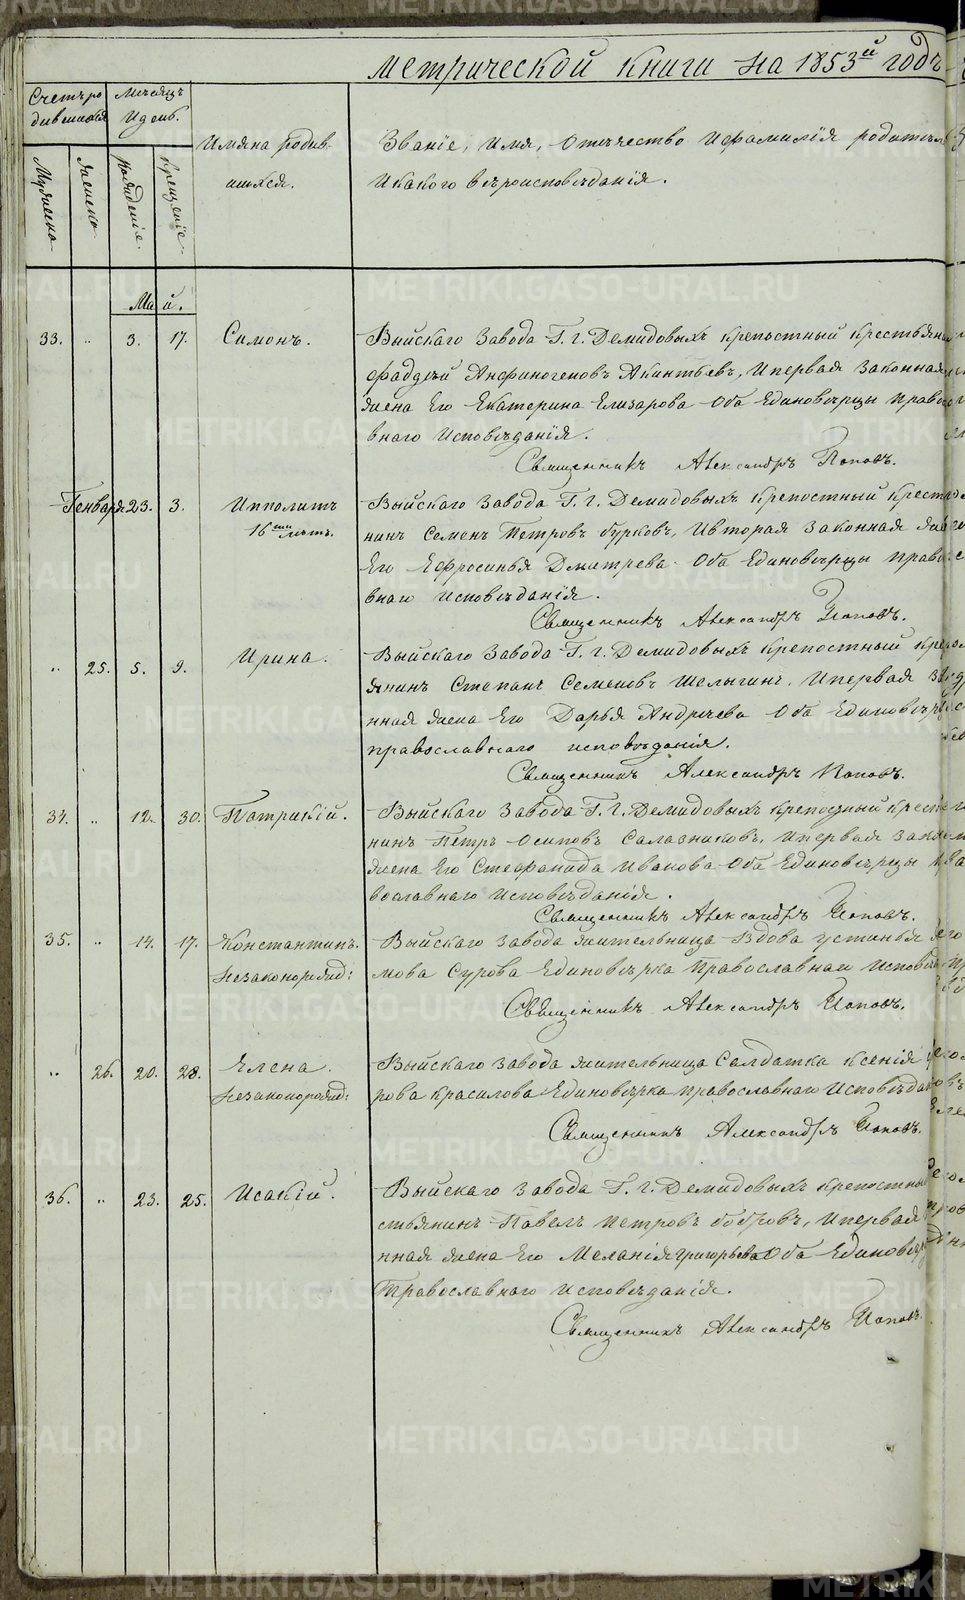 метрической книги на 1853й годъ
Счетъ ро
дившихся
Мѣсяцъ
и день.
Имяна родив-
шихся.
Званіе, имя, отчество и фамилія родителей
и какого вѣроисповѣданія.
Мужеска
женска
рожденія
крещенія
Май.
33. „ 3. 17. Симонъ. Выйскаго завода Г. г. Демидовыхъ крепостный крестьянинъ
Фаддѣй Анфиногеновъ Акинтьевъ, и первая законная
жена его Екатерина Елизарова оба Единовѣрцы право
внаго исповѣданія.
Священникъ Александръ Поповъ.
Генваря 23. 3. Ипполитъ Выйскаго завода Г. г. Демидовыхъ крепостный крестья
16ти лѣтъ. нинъ Семенъ Петровъ Бурковъ, и вторая законная жена
его Ефросинья Дмитрева оба Единовѣрцы право
внаго исповѣданія.
Священникъ Александръ Поповъ.
„ 25. 5. 9. Ирина. Выйскаго завода Г. г. Демидовыхъ крепостный кре
янинъ Степанъ Семеновъ Шелыгинъ, и первая за
нная жена его Дарья Андреева оба Единовѣрцы
православнаго исповѣданія.
Священникъ Александръ Поповъ.
34. „ 12. 30. Патрикій. Выйскаго завода Г. г. Демидовыхъ крепостный крестья
нинъ Петръ Осиповъ Салазниковъ, и первая закон
жена его Стефанида Иванова оба Единовѣрцы пра
вославнаго исповѣданія.
Священникъ Александръ Поповъ.
35. „ 14. 17. Константинъ. Выйскаго завода жительница вдова Устинья
незаконорожд: мова Сурова Единовѣрка православнаго исповѣд
Священникъ Александръ Поповъ.
„ 26. 20. 28. Елена. Выйскаго завода жительница Салдатка Ксенія
незаконорожд: рова Красилова Единовѣрка православнаго исповѣда
Священникъ Александръ Поповъ.
36. „ 23. 25. Исакій. Выйскаго завода Г. г. Демидовыхъ крепостный
стьянинъ Павелъ Петровъ Бобровъ, и первая
нная жена его Меланія Григорьева оба Единовѣр
православнаго исповѣданія.
Священникъ Александръ Поповъ.
METRIKI.GASO-URAL.RU